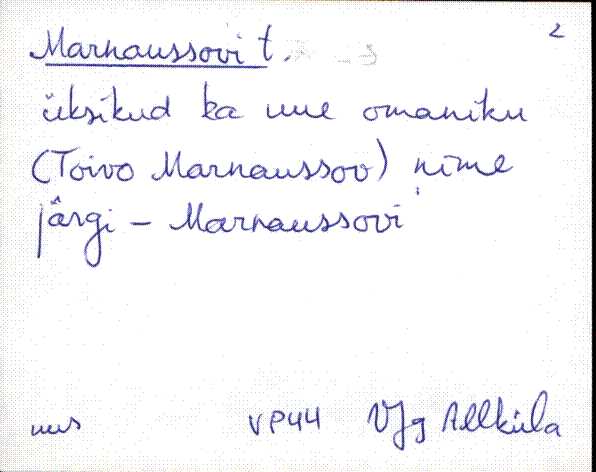 2
Marnaussovi t.
üksikud ka uue omaniku
(Toivo Marnaussov) nime
järgi – Marnaussovi
uus VP44 VJg Allküla